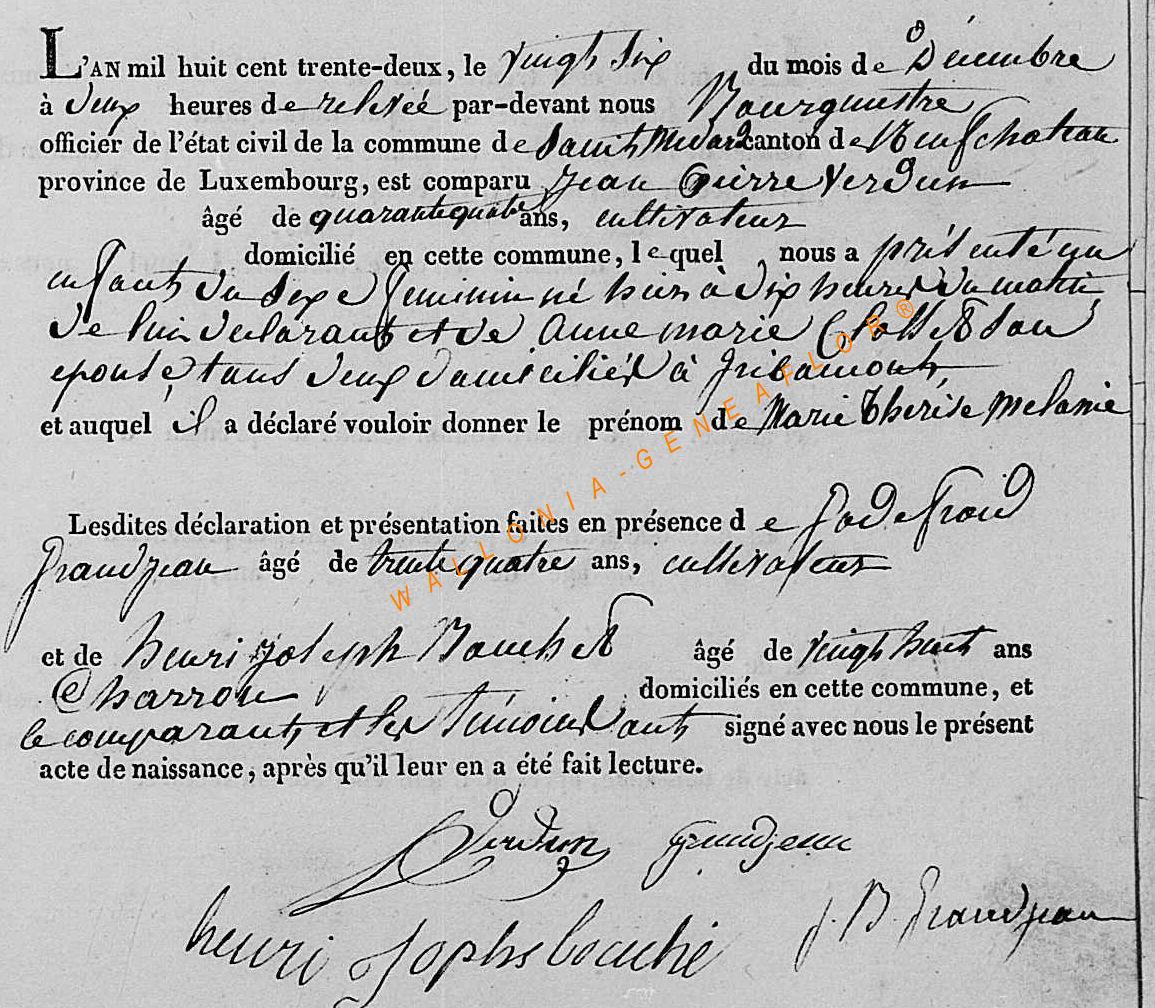 L'AN mil huit cent trente-deux, le vingt six du mois de Décembre
à deux heures de relevée par-devant nous Bourgmestre
officier de l'état civil de la commune de Saint Medard canton de Neufchateau
province de Luxembourg, est comparu Jean Pierre Verdun
âgé de quarante quatre ans, cultivateur
domicilié en cette commune, lequel nous a présenté un
enfant du sexe feminin né hier à dix heures du matin
de lui declarant et de Anne Marie Collet son
epouse tous deux domiciliés à Gribamont
et auquel il a déclaré vouloir donner le prénom de Marie Thérèse Melanie
Lesdites déclaration et présentation faites en présence de Godefroid
Grandjean âgé de trente quatre ans, cultivateur
et de henri Joseph Bouchet âgé de vingt huit ans
Charron domiciliés en cette commune, et
le comparant et les témoins ont signé avec nous le présent
acte de naissance, après qu'il leur en a été fait lecture.
Verdun Grandjean
henri Josphs bouché J. B. Grandjean
WALLONIA-GENEAFLOR®